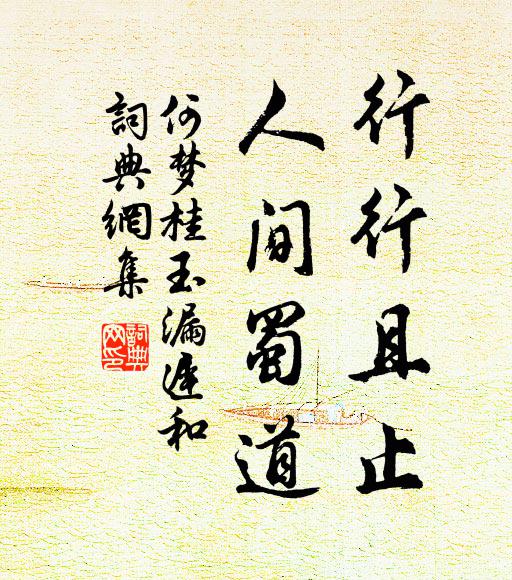 行行且止
人间蜀道
何梦桂玉漏遲和
詞典網集
詞典
网印